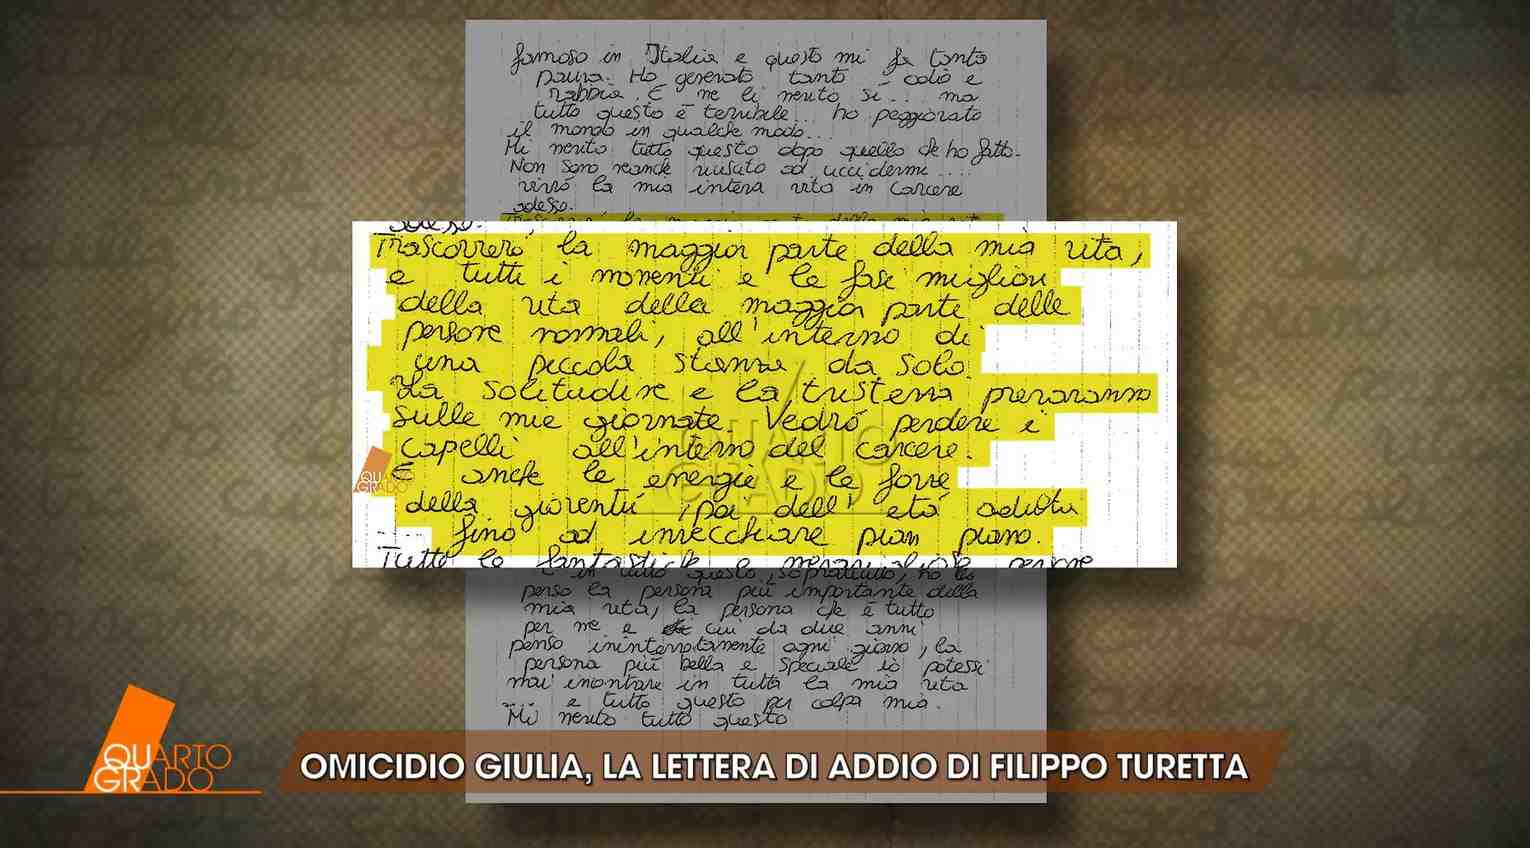 famoso in Italia e questo mi fa tanta
paura. Ho generato tanto odio e
rabbia. E me li merito sì... ma
tutto questo è terribile... ho peggiorato
il mondo in qualche modo...
Mi merito tutto questo dopo quello che ho fatto.
Non sono neanche riuscito ad uccidermi....
vivrò la mia intera vita in carcere
adesso.
Trascorrerò la maggior parte della mia vita,
e tutti i momenti e le fasi migliori
della vita della maggior parte delle
persone normali, all'interno di
una piccola stanza da solo.
La solitudine e la tristezza prevarranno
sulle mie giornate. Vedrò perdere i
capelli all'interno del carcere.
E anche le energie e le forze
della gioventú, poi dell'etá adulta
fino ad invecchiare pian piano.
Tutte le fantastiche e meravigliose persone
E in tutto questo, soprattutto, ho
perso la persona piú importante della
mia vita, la persona che è tutto
per me e cui da due anni
penso ininterrottamente ogni giorno, la
persona più bella e speciale io potessi
mai incontrare in tutta la mia vita
.... e tutto questo per colpa mia.
Mi merito tutto questo
QUARTO
GRADO
QUARTO
GRADO
QUARTO
GRADO
OMICIDIO GIULIA, LA LETTERA DI ADDIO DI FILIPPO TURETTA